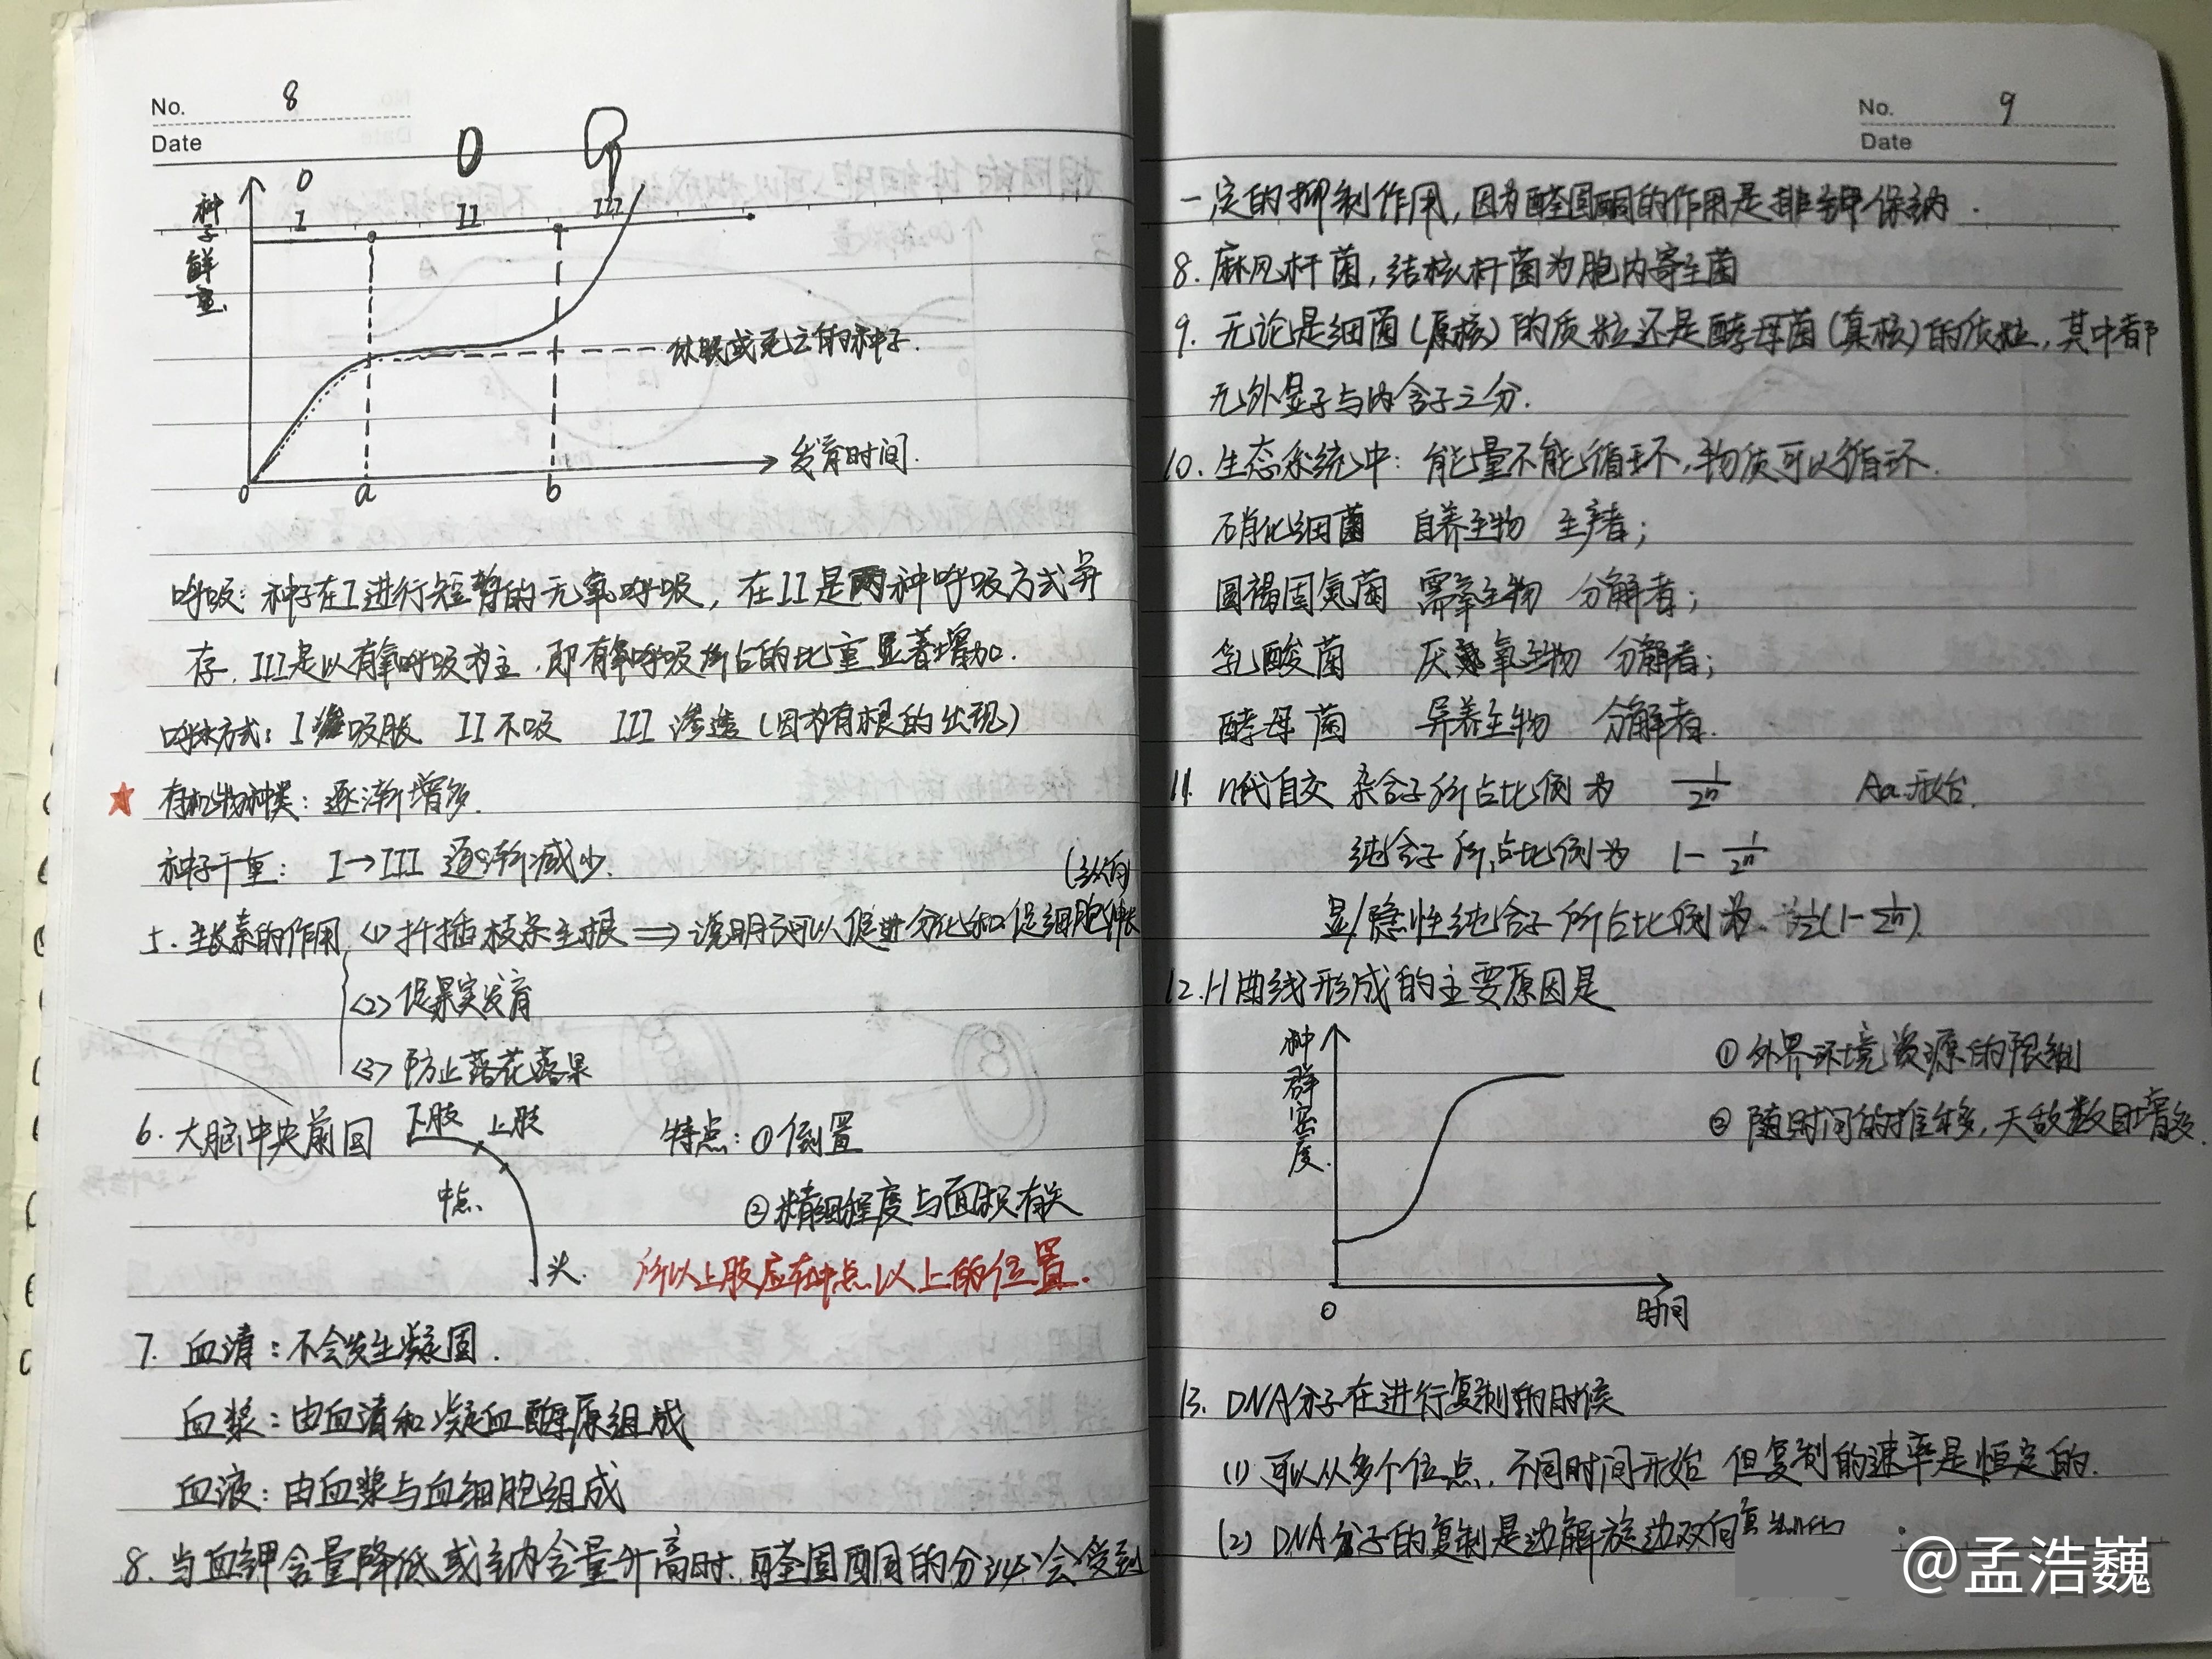 No. 8
Date
种子鲜重
I
II
III
休眠或死亡的种子.
发育时间.
0
a
b
呼吸: 种子在I进行短暂的无氧呼吸, 在II是两种呼吸方式并
存, III是以有氧呼吸为主, 即有氧呼吸所占的比重显著增加.
方式: I 吸胀 II 不吸 III 渗透 (因为有根的出现)
★ 有机物种类: 逐渐增多.
种子干重: I→III 逐渐减少.
(纵向)
5. 生长素的作用 <1> 扦插枝条生根 ⟹ 说明可以促进分化和促细胞伸长
<2> 促果实发育
<3> 防止落花落果
6. 大脑中央前回 下肢 上肢 特点: ① 倒置
中点 ② 精细程度与面积有关
头. 所以上肢应在中点以上的位置.
7. 血清: 不会发生凝固.
血浆: 由血清和凝血酶原组成
血液: 由血浆与血细胞组成
8. 当血钾含量降低或钠含量升高时, 醛固酮的分泌会受到
No. 9
Date
一定的抑制作用, 因为醛固酮的作用是排钾保纳.
8. 麻风杆菌, 结核杆菌为胞内寄生菌
9. 无论是细菌(原核)的质粒还是酵母菌(真核)的质粒, 其中都
无外显子与内含子之分.
10. 生态系统中: 能量不能循环, 物质可以循环.
硝化细菌 自养生物 生产者;
圆褐固氮菌 需氧生物 分解者;
乳酸菌 厌氧生物 分解者;
酵母菌 异养生物 分解者.
11. n代自交 杂合子所占比例为 1/2ⁿ Aa开始.
纯合子所占比例为 1-1/2ⁿ
显/隐性纯合子所占比例为 1/2(1-1/2ⁿ).
12. 曲线形成的主要原因是
种群密度.
① 外界环境资源的限制
② 随时间的推移, 天敌数目增多.
0
时间
13. DNA分子在进行复制的时候
(1) 可以从多个位点, 不同时间开始 但复制的速率是恒定的.
(2) DNA分子的复制是边解旋边双向复制的
@孟浩巍